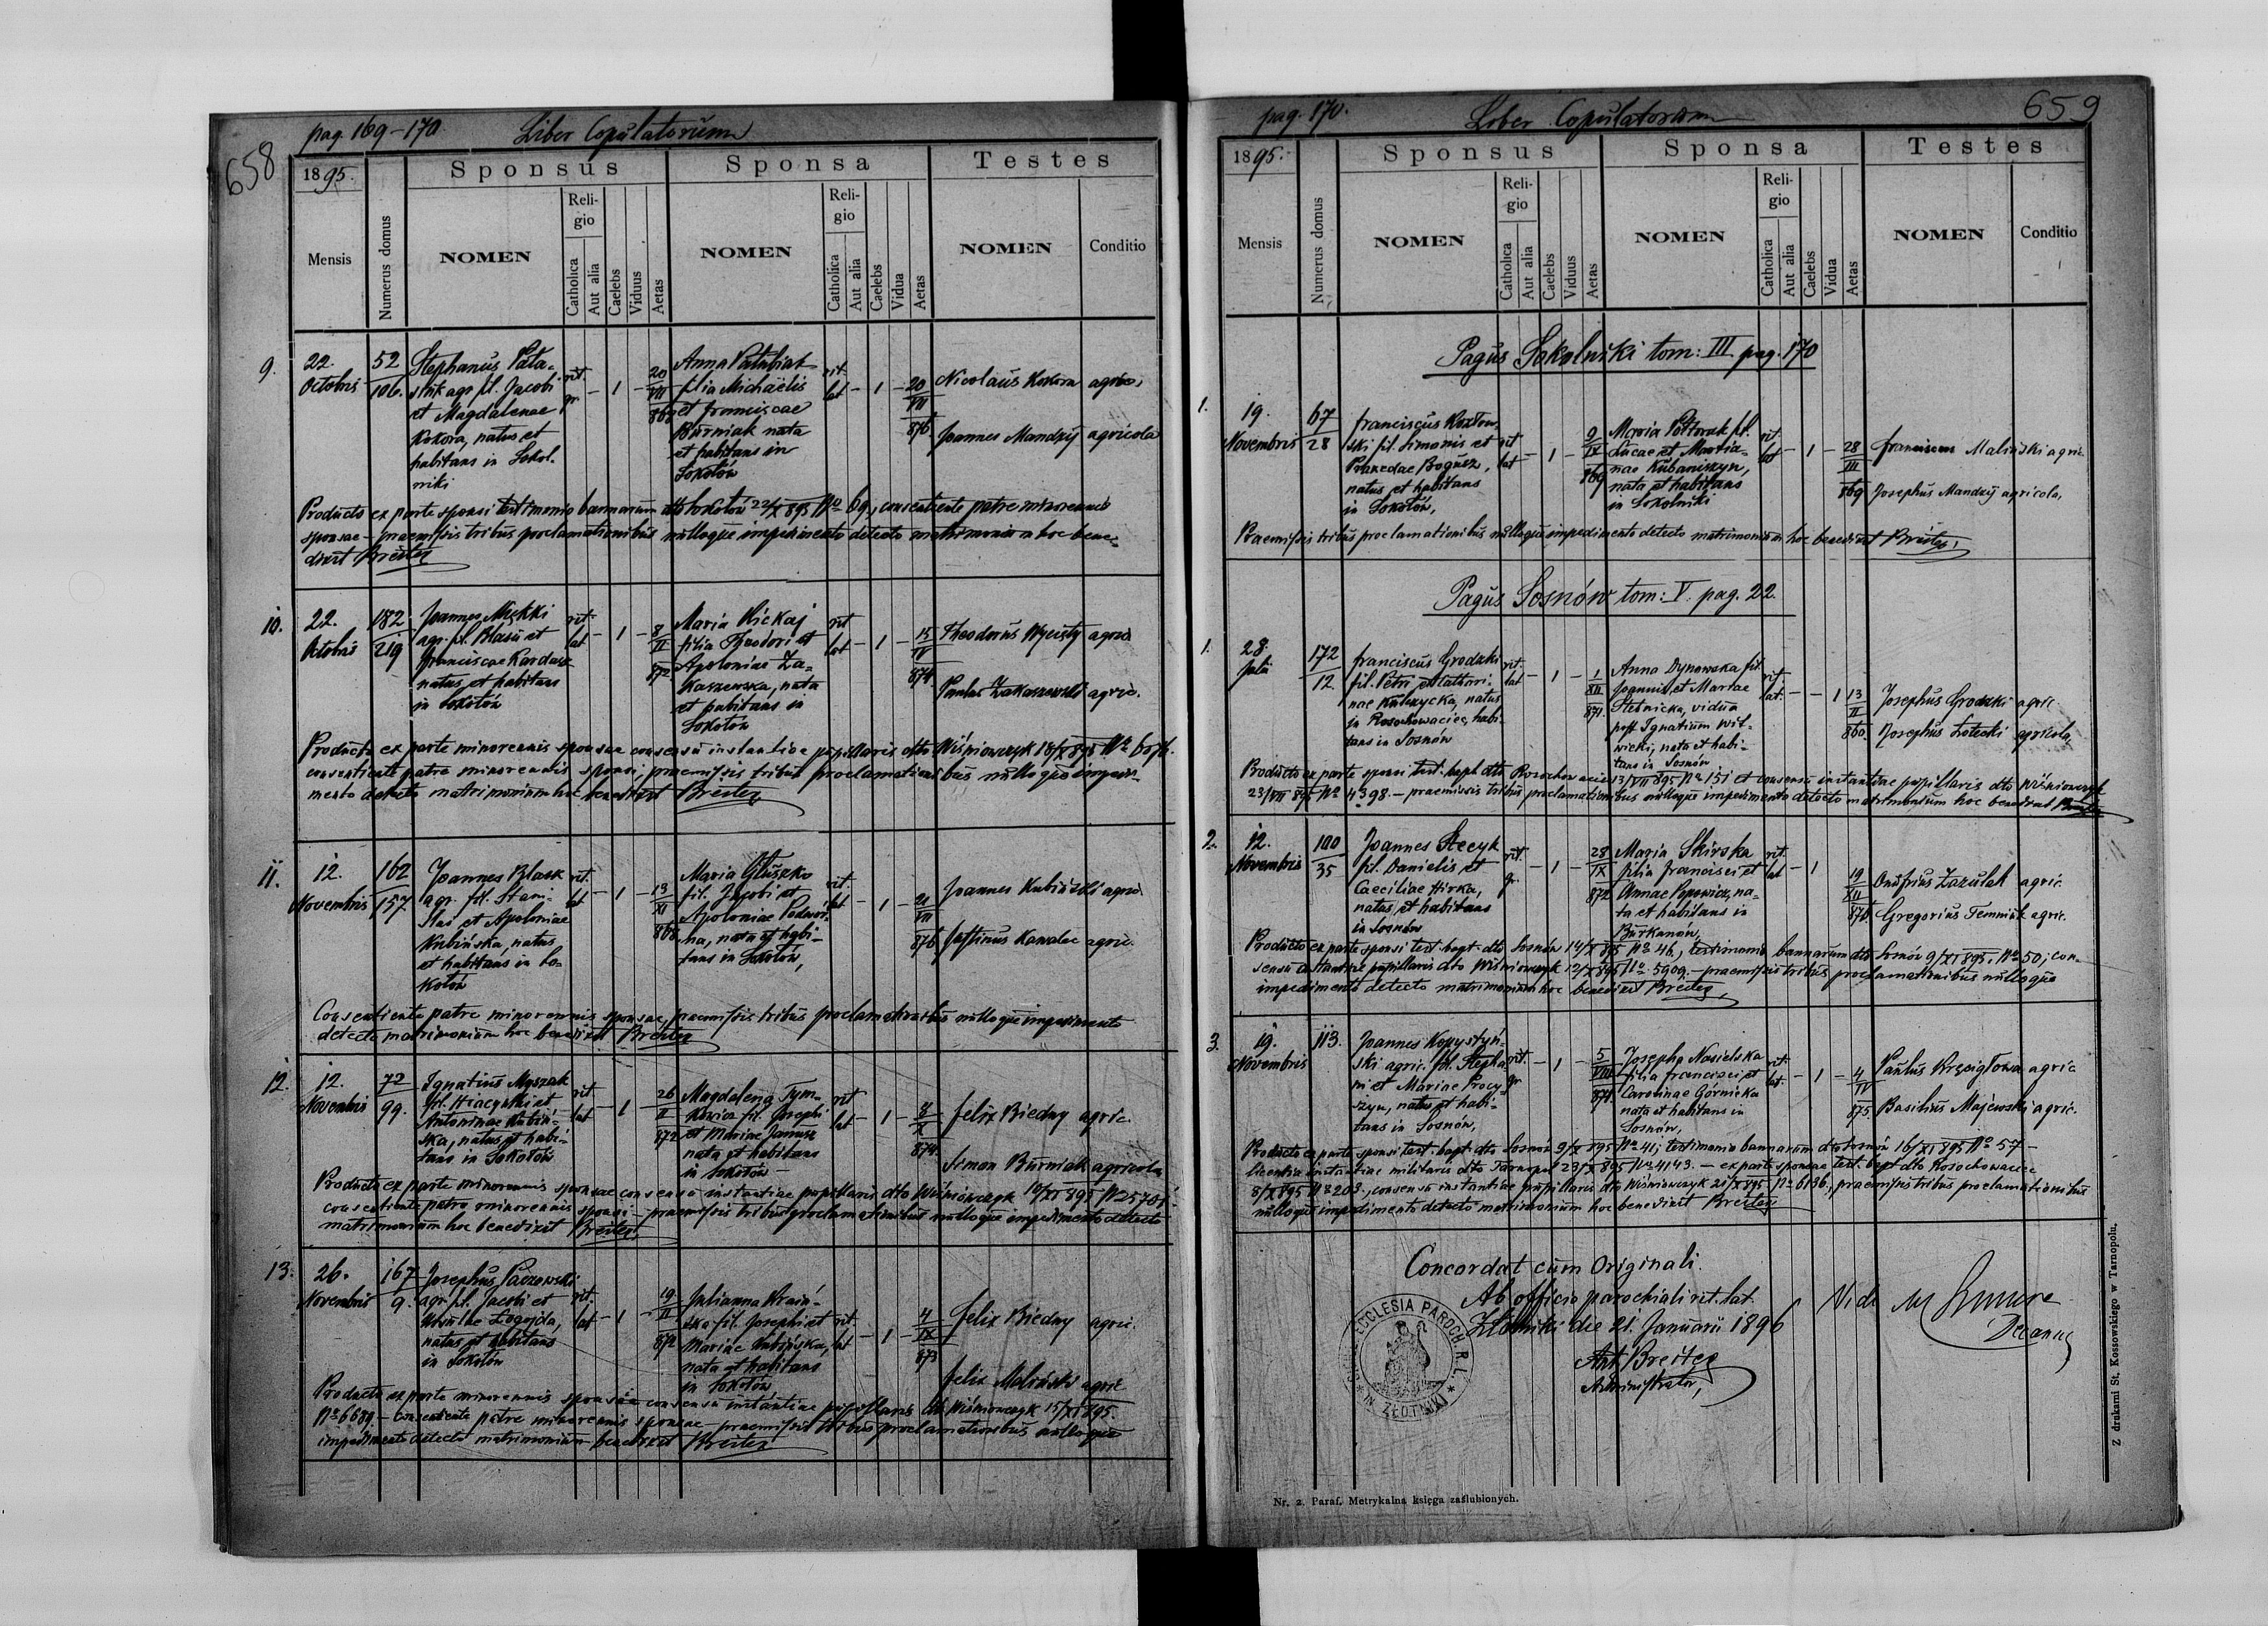 658
pag. 169-170
Liber Copulatorum
1895.
Sponsus
Sponsa
Testes
Mensis
Numerus domus
NOMEN
Religio
Catholica
Aut alia
Caelebs
Viduus
Aetas
NOMEN
Religio
Catholica
Aut alia
Caelebs
Vidua
Aetas
NOMEN
Conditio
9.
22.
Octobris
52
106.
Stephanus
agr. fil. Jacobi
et Magdalenae
Kokora, natus et
habitans in Sokol-
niki
rit.
gr.
– 1 –
20
VII
869
Anna
filia Michaëlis
et Franciscae
Burniak nata
et habitans in
Sokołów
rit.
lat
– 1 –
20
VII
876
Nicolaus Kokora agric.
Joannes Mandzij agricola
Producto ex parte sponsi testimonio bannorum dto 22/X 895 No 69, consentiente patre minorennis
sponsae – praemissis tribus proclamationibus nulloque impedimento detecto matrimonium hoc bene-
dixit Breiter
10.
22.
Octobris
182
219
Joannes Miękki
agr. fil. Blasii et
Franciscae Kardasz
natus et habitans
in Sokołów
rit.
lat
– 1 –
8
II
872
Maria Hickaj
filia Theodori et
Apoloniae Za-
kaszewska, nata
et habitans in
Sokołów
rit
lat
– 1 –
15
IV
874
Theodorus Wycisty agric.
Paulus Zakaszewski agric.
Producto ex parte minorennis sponsae consensu instantiae pupillaris dto Wiśniowczyk 18/X 895 No
consentiente patre minorennis sponsi, praemissis tribus proclamationibus nulloque impedi-
mento detecto matrimonium hoc benedixit Breiter
11.
12.
Novembris
162
157
Joannes Blask
agr. fil. Stani-
slai et Apoloniae
Kubińska, natus
et habitans in So-
kołów
rit.
lat
– 1 –
13
XI
868
Maria Głuszko
fil. Jacobi et
Apoloniae
na, nata et habi-
tans in Sokołów,
rit.
lat
– 1 –
21
VII
876
Joannes Kubiński agric.
Justinus Kawalec agric.
Consentiente patre minorennis sponsae, praemissis tribus proclamationibus nulloque impedimento
detecto matrimonium hoc benedixit Breiter
12.
12.
Novembris
72
99.
Ignatius Myszak
fil. Hiacynthi et
Antoninae Kubiń-
ska, natus et habi-
tans in Sokołów
rit
lat
– 1 –
26
II
872
Magdalena Tym-
kowicz fil. Josephi
et Mariae Janusz
nata et habitans
in Sokołów –
rit
lat
– 1 –
X
874
Felix Biedny agric.
Simon Burniak agricola
Producto ex parte minorennis sponsae consensu instantiae pupillaris dto Wiśniowczyk 10/XI 895
consentiente patre minorennis sponsi – praemissis tribus proclamationibus nulloque impedimento detecto
matrimonium hoc benedixit Breiter
13.
26.
Novembris
167
9.
Josephus Paczowski
agr. fil. Jacobi et
Ursulae Łogojda,
natus et habitans
in Sokołów
rit.
lat
– 1 –
19
II
872
Julianna Kraiń-
ska fil. Josephi et
Mariae Kubińska,
nata et habitans
in Sokołów
rit.
lat
– 1 –
4
IX
873
Felix Biedny agric.
Felix agric
Producto ex parte minorennis sponsae consensu instantiae pupillaris dto Wiśniowczyk 15/XI 895.
No 6689. – consentiente patre minorennis sponsae – praemissis tribus proclamationibus nulloque
impedimento detecto matrimonium benedixit Breiter
pag. 170.
Liber Copulatorum
659
1895.
Sponsus
Sponsa
Testes
Mensis
Numerus domus
NOMEN
Religio
Catholica
Aut alia
Caelebs
Viduus
Aetas
NOMEN
Religio
Catholica
Aut alia
Caelebs
Vidua
Aetas
NOMEN
Conditio
Pagus Sokolniki tom: III. pag. 170
1.
19.
Novembris
67
28
Franciscus Kozłow-
ski fil. Simonis et
Praxedae Bogusz,
natus et habitans
in Sokołów,
rit
lat
– 1 –
9
IX
869
Maria Półtorak fil.
Lucae et Marian-
nae Kubaniszyn,
nata et habitans
in Sokolniki
rit.
lat
– 1 –
28
III
869
Franciscus Maliński agric.
Josephus Mandzij agricola,
Praemissis tribus proclamationibus nulloque impedimento detecto matrimonium hoc benedixit Breiter,
Pagus Sosnów tom: V. pag. 22.
1.
28.
Julii
172
12.
Franciscus Grodzki
fil. Petri et Cathari-
nae Kulczycka, natus
in Rosochowaciec, habi-
tans in Sosnów
rit.
lat
– 1 –
1
XII
871.
Anna Dynowska fil.
Joannis et Mariae
Stetnicka, vidua
post Ignatium Wit-
wicki, nata et habi-
tans in Sosnów
rit.
lat.
– – 1
13
II
860.
Josephus Grodzki agric.
Josephus Łotecki agricola,
Producto ex parte sponsi test. bapt. dto Rosochowaciec 13/VII 895 No 15; et consensu instantiae pupillaris dto Wiśniowczyk
23/VII 895 No 4398. – praemissis tribus proclamationibus nulloque impedimento detecto matrimonium hoc benedixit Breiter
2.
12.
Novembris
100
35
Joannes Stecyk
fil. Danielis et
Caeciliae Hirka,
natus et habitans
in Sosnów
rit.
gr.
– 1 –
28
IX
872
Maria Skirska
filia Francisci et
Annae Popowicz, na-
ta et habitans in
Burkanów,
rit.
lat
– 1
19
XII
876
Onufrius Zazulak agric.
Gregorius Temniuk agric.
Producto ex parte sponsi test. bapt. dto Sosnów 14/X 895 No 46., testimonio bannorum dto Sosnów 9/XI 895. No 50; con-
sensu instantiae pupillaris dto Wiśniowczyk 12/X 895 No 5909. – praemissis tribus proclamationibus nulloque
impedimento detecto matrimonium hoc benedixit Breiter,
3.
19.
Novembris
113.
Joannes Kopystyń-
ski agric. fil. Stepha-
ni et Mariae Procy-
szyn, natus et habi-
tans in Sosnów,
rit.
gr
– 1 –
5
VIII
871
Josepha Nosielska
filia Francisci et
Carolinae Górnicka
nata et habitans in
Sosnów,
rit.
lat.
– 1 –
4
IV
875.
Paulus Kręcigłowa agric
Basilius Majewski agric.
Producto ex parte sponsi test. bapt. dto Sosnów 9/X 895 No 41; testimonio bannorum dto Sosnów 16/XI 895 No 57 –
licentia instantiae militaris dto Tarnopol 23/X 895 No 4143. – ex parte sponsae test. bapt dto Rosochowaciec
8/X 895 No 203., consensu instantiae pupillaris dto Wiśniowczyk 21/X 895 No 6136., praemissis tribus proclamationibus
nulloque impedimento detecto matrimonium hoc benedixit Breiter
Concordat cum Originali.
Ab officio parochiali rit. lat.
Złotniki die 21. Januarii 1896
Ant. Breiter
Administrator,
Vidi
Decanus
ECCLESIA PAROCH. R. L. * IN ZŁOTNIKI *
Nr. 2. Paraf. Metrykalna księga zaślubionych.
Z drukarni St. Kossowskiego w Tarnopolu.